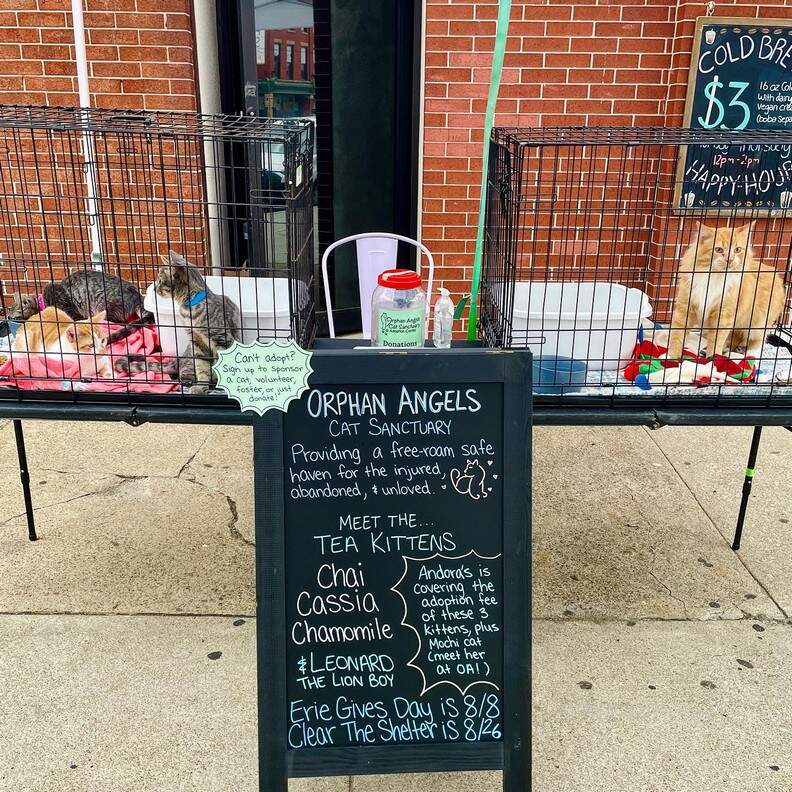 COLD
$3
16 oz
with dairy
vegan
(boba
12pm - 2pm
HAPPY HOUR
Orphan Angels
Cat Sanctuary
& Adoption Center
Donations
Can't adopt?
Sign up to sponsor
a cat, volunteer,
foster, or just
donate!
ORPHAN ANGELS
CAT SANCTUARY
Providing a free-roam safe
haven for the injured,
abandoned, & unloved.
MEET THE...
TEA KITTENS
Chai
Cassia
Chamomile
& LEONARD
THE LION BOY
Andora's is
covering the
adoption fee
of these 3
kittens, plus
Mochi cat
(meet her
at OA!)
Erie Gives Day is 8/8
Clear The Shelter is 8/26